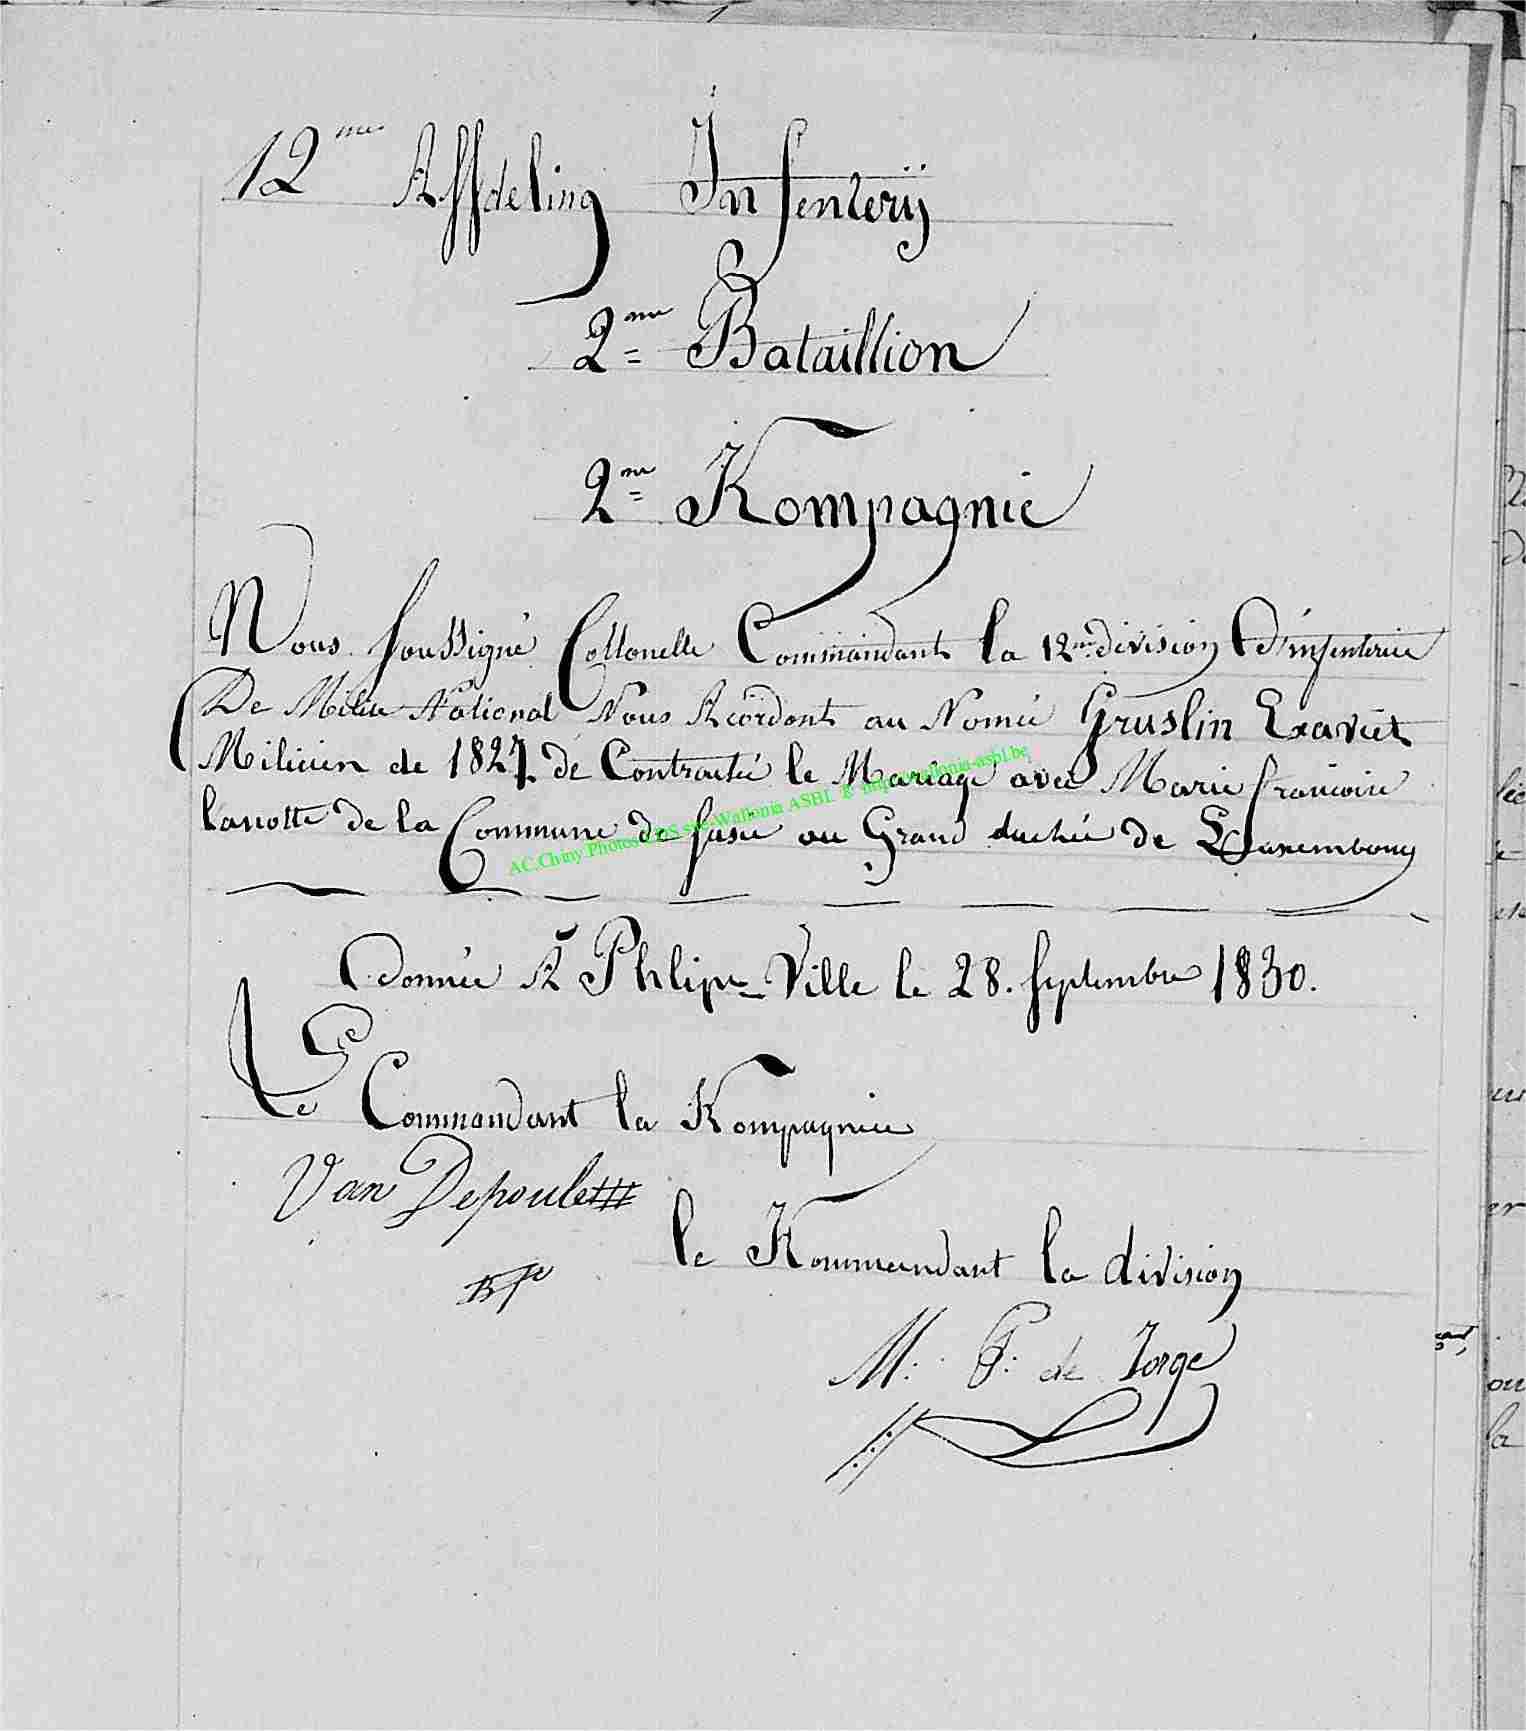 12me Affdeling Infenterij
2me Bataillion
2me Kompagnie
Nous Soussigné Collonelle Commandant la 12me division D'infenterie
De Milice National Nous Acordont au Nomée Gruslin Exavier
Milicien de 1827 de Contractée le Mariage avec Marie francoise
lanotte de la Commune de Susie au Grand duchée de Luxembourg
donnée A Phlipe=Ville le 28. Septembre 1830.
Le Commandant la Kompagnie
Van
le Kommandant la division
M: F: de Jorge
AC.Chiny Photos site Wallonia ASBL wallonia-asbl.be